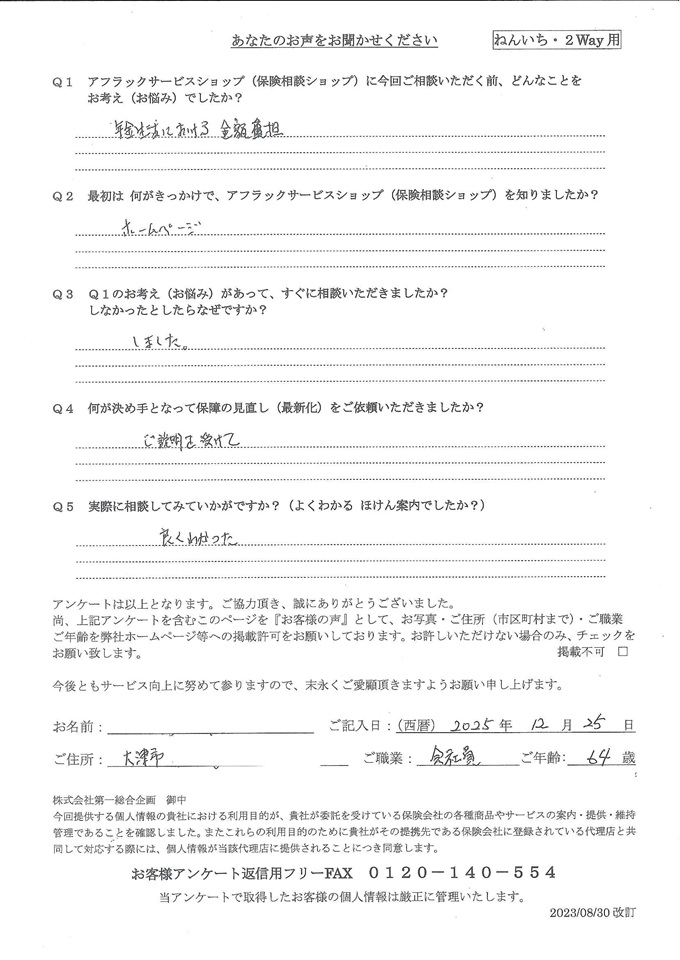 あなたのお声をお聞かせください
ねんいち・2Way用
Q1 アフラックサービスショップ（保険相談ショップ）に今回ご相談いただく前、どんなことを
お考え（お悩み）でしたか？
年金生活における金額負担
Q2 最初は 何がきっかけで、アフラックサービスショップ（保険相談ショップ）を知りましたか？
ホームページ
Q3 Q1のお考え（お悩み）があって、すぐに相談いただきましたか？
しなかったとしたらなぜですか？
しました。
Q4 何が決め手となって保障の見直し（最新化）をご依頼いただきましたか？
ご説明を受けて
Q5 実際に相談してみていかがですか？（よくわかる ほけん案内でしたか？）
良くわかった
アンケートは以上となります。ご協力頂き、誠にありがとうございました。
尚、上記アンケートを含むこのページを『お客様の声』として、お写真・ご住所（市区町村まで）・ご職業
ご年齢を弊社ホームページ等への掲載許可をお願いしております。お許しいただけない場合のみ、チェックを
お願い致します。 掲載不可 □
今後ともサービス向上に努めて参りますので、末永くご愛顧頂きますようお願い申し上げます。
お名前： ご記入日：（西暦） 2025 年 12 月 25 日
ご住所： 大津市 ご職業： 会社員 ご年齢： 64 歳
株式会社第一総合企画 御中
今回提供する個人情報の貴社における利用目的が、貴社が委託を受けている保険会社の各種商品やサービスの案内・提供・維持
管理であることを確認しました。またこれらの利用目的のために貴社がその提携先である保険会社に登録されている代理店と共
同して対応する際には、個人情報が当該代理店に提供されることにつき同意します。
お客様アンケート返信用フリーFAX 0120－140－554
当アンケートで取得したお客様の個人情報は厳正に管理いたします。
2023/08/30 改訂